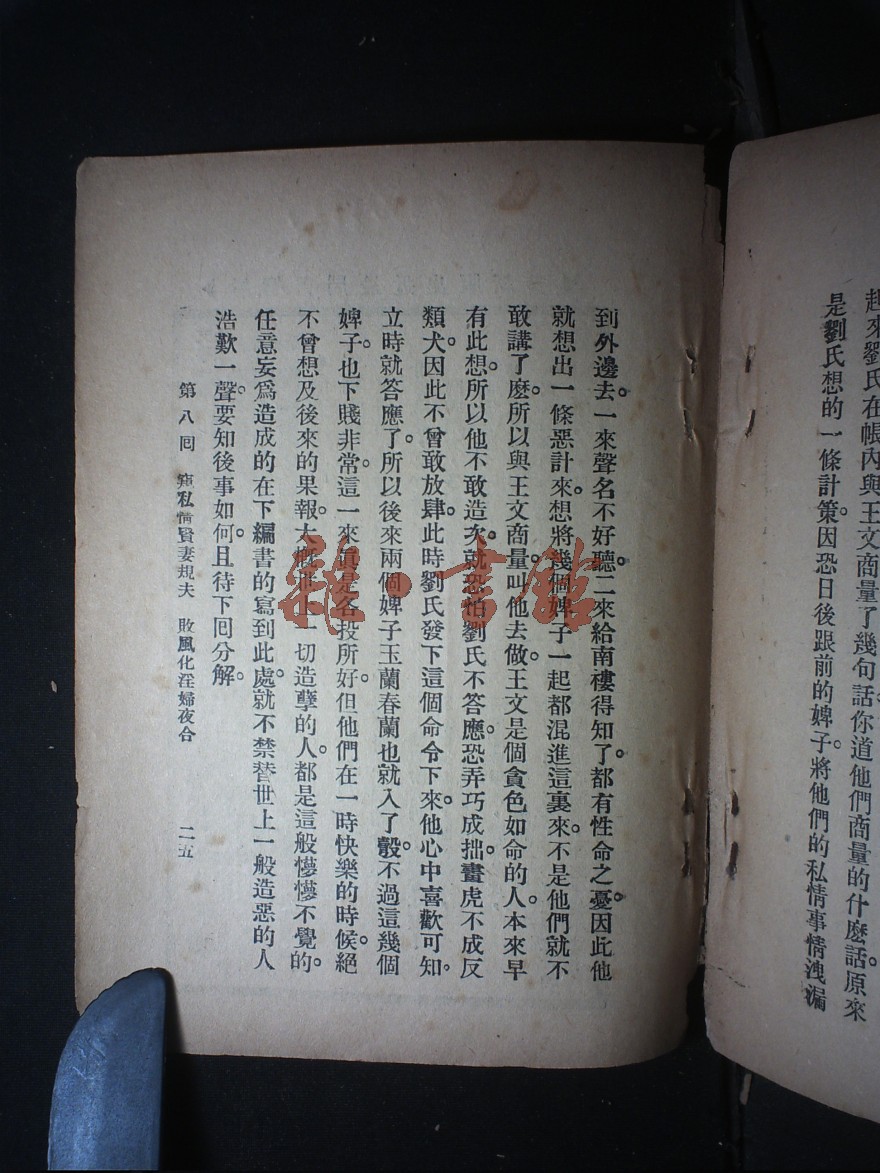 起來劉氏在帳內與王文商量了幾句話你道他們商量的什麽話。原來
是劉氏想的一條計策因恐日後跟前的婢子。將他們的私情事情洩漏
到外邊去。一來聲名不好聽。二來給南樓得知了。都有性命之憂。因此他
就想出一條惡計來。想將幾個婢子一起都混進這裏來。不是他們就不
敢講了麽。所以與王文商量。叫他去做。王文是個貪色如命的人。本來早
有此想。所以他不敢造次。就恐怕劉氏不答應。恐弄巧成拙。畫虎不成反
類犬。因此不曾敢放肆。此時劉氏發下這個命令下來。他心中喜歡可知。
立時就答應了。所以後來兩個婢子玉蘭春蘭也就入了彀。不過這幾個
婢子。也下賤非常。這一來真是各投所好。但他們在一時快樂的時候。絕
不曾想及後來的果報。大概世上一切造孽的人。都是這般懵懵不覺的。
任意妄爲造成的。在下編書的寫到此處。就不禁替世上一般造惡的人
浩歎一聲。要知後事如何。且待下回分解。
第八回 私情賢妻規夫 敗風化淫婦夜合 二五
雜·書館